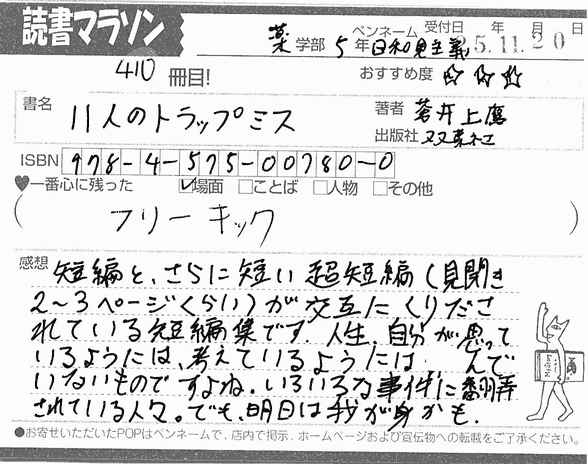 読書マラソン
ペンネーム 受付日 年 月 日
薬 学部 5 年 日和見主義 25.11.20
410 冊目!
おすすめ度 ☆ ☆ ☆
書名 11人のトラップミス
著者 蒼井上鷹
出版社 双葉社
ISBN 978-4-575-00780-0
♥一番心に残った ☑場面 □ことば □人物 □その他
( フリーキック )
感想 短編と、さらに短い超短編(見開き
2〜3ページくらい)が交互にくりださ
れている短編集です。人生、自分が思って
いるようには、考えているようには、 んで
いないものですよね。いろいろな事件に翻弄
されている人々。でも、明日は我が身かも。
●お寄せいただいたPOPはペンネームで、店内で掲示、ホームページおよび宣伝物への転載をご了承ください。